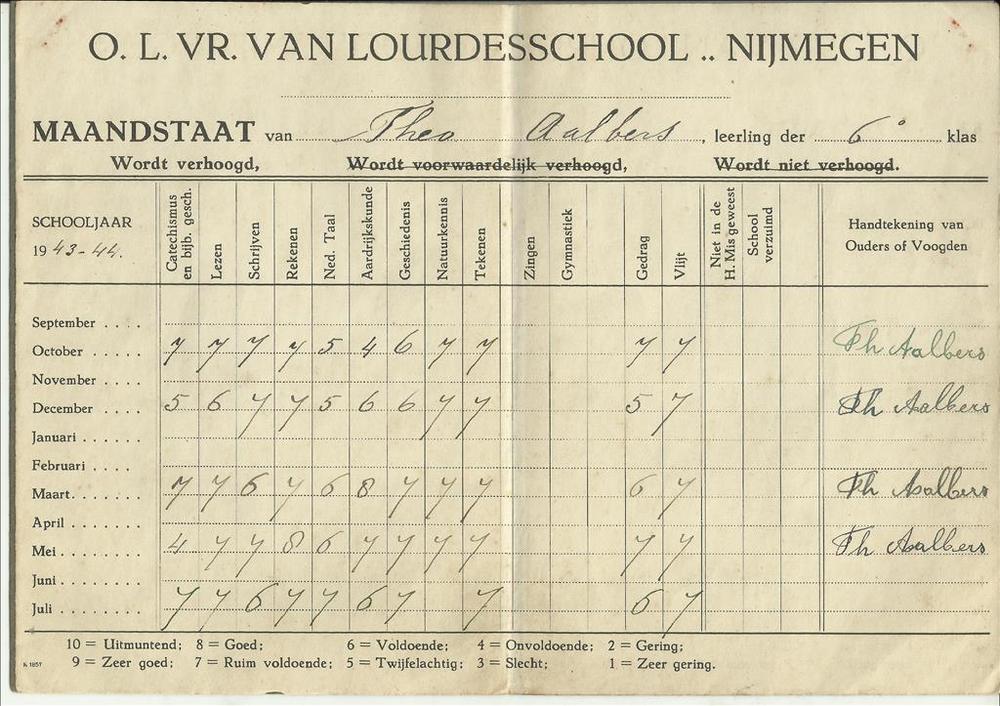 O. L. VR. VAN LOURDESSCHOOL .. NIJMEGEN
MAANDSTAAT van Theo Aalbers, leerling der 6e klas
Wordt verhoogd, Wordt voorwaardelijk verhoogd, Wordt niet verhoogd.
SCHOOLJAAR
1943-44.
Catechismus en bijb. gesch.
Lezen
Schrijven
Rekenen
Ned. Taal
Aardrijkskunde
Geschiedenis
Natuurkennis
Tekenen
Zingen
Gymnastiek
Gedrag
Vlijt
Niet in de H. Mis geweest
School verzuimd
Handtekening van
Ouders of Voogden
September . . . .
October . . . . . 7 7 7 7 5 4 6 7 7 7 7 Th Aalbers
November . . . .
December . . . . 5 6 7 7 5 6 6 7 7 5 7 Th Aalbers
Januari . . . . . .
Februari . . . .
Maart. . . . . . . 7 7 6 7 6 8 7 7 7 6 7 Th Aalbers
April . . . . . . .
Mei . . . . . . . . 4 7 7 8 6 7 7 7 7 7 7 Th Aalbers
Juni . . . . . . . .
Juli . . . . . . . . 7 7 6 7 7 6 7 7 6 7
10 = Uitmuntend; 8 = Goed; 6 = Voldoende; 4 = Onvoldoende; 2 = Gering;
9 = Zeer goed; 7 = Ruim voldoende; 5 = Twijfelachtig; 3 = Slecht; 1 = Zeer gering.
K 1857